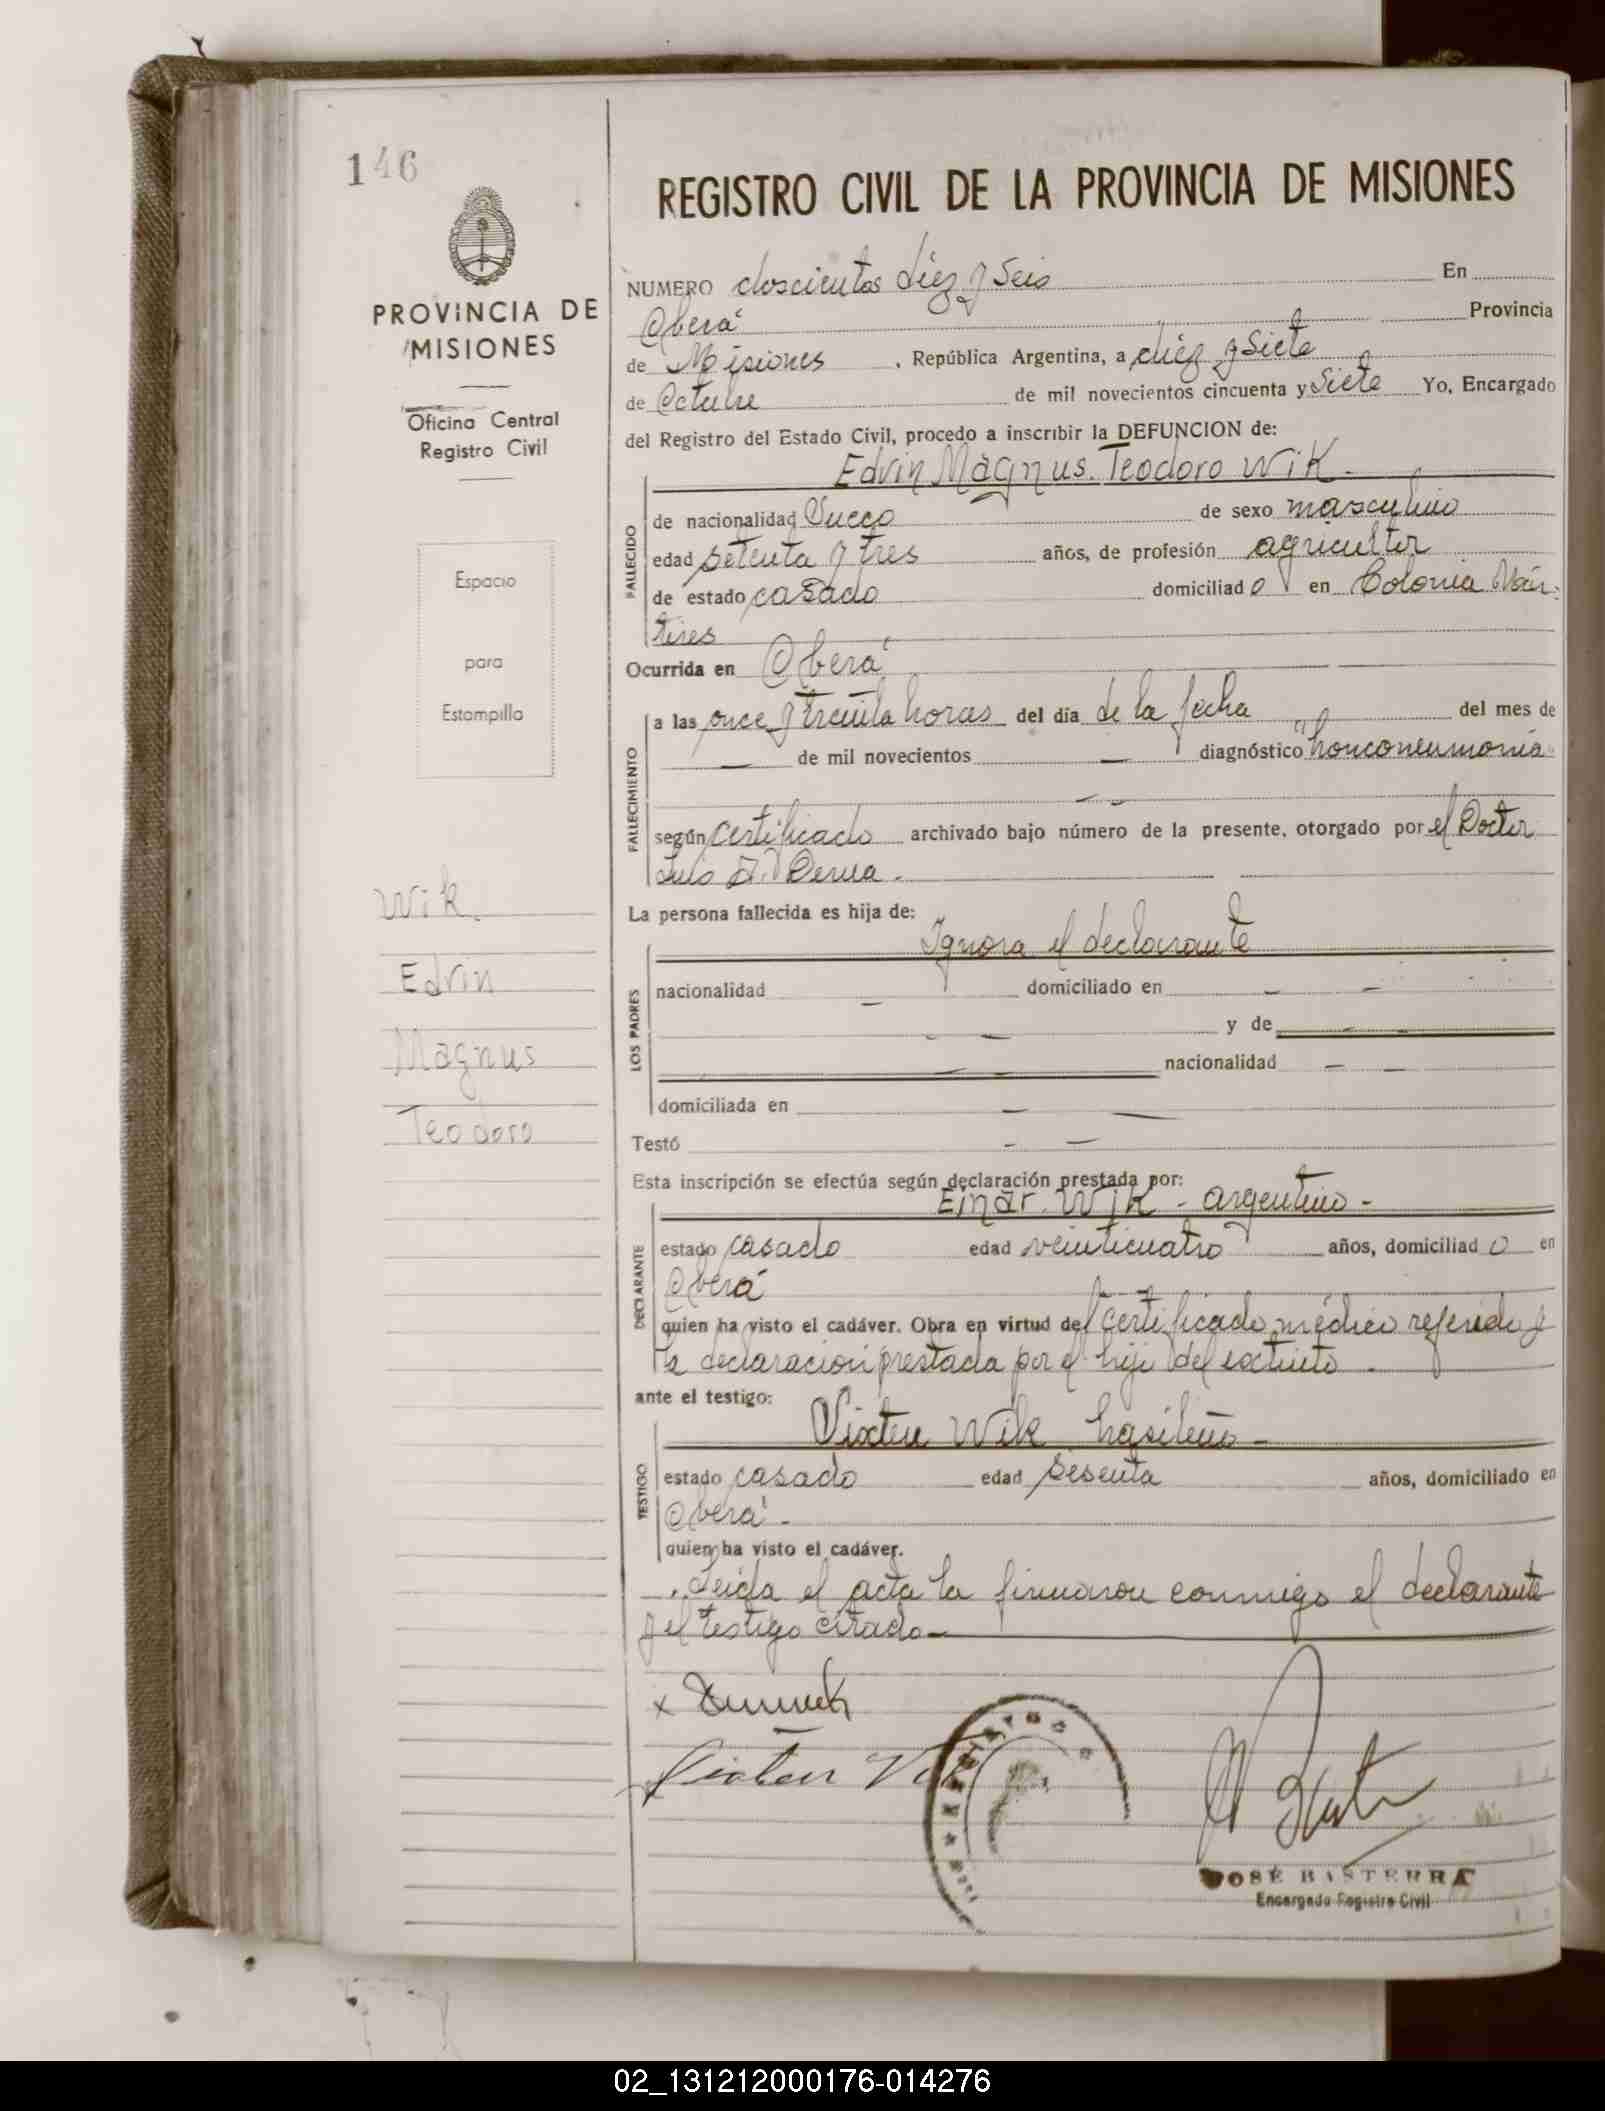 146
PROVINCIA DE
MISIONES
Oficina Central
Registro Civil
Espacio
para
Estampilla
Wik
Edvin
Magnus
Teodoro
REGISTRO CIVIL DE LA PROVINCIA DE MISIONES
NUMERO doscientos diez y seis En
Oberá Provincia
de Misiones, República Argentina, a diez y siete
de Octubre de mil novecientos cincuenta y siete Yo, Encargado
del Registro del Estado Civil, procedo a inscribir la DEFUNCION de:
Edvin Magnus. Teodoro Wik -
FALLECIDO
de nacionalidad Sueco de sexo masculino
edad setenta y tres años, de profesión agricultor
de estado casado domiciliado en Colonia Már-
tires
Ocurrida en Oberá
FALLECIMIENTO
a las once y treinta horas del día de la fecha del mes de
— de mil novecientos — diagnóstico "bronconeumonia"
según certificado archivado bajo número de la presente, otorgado por el Doctor
Luis A.
La persona fallecida es hija de:
Ignora el declarante
LOS PADRES
nacionalidad — domiciliado en — —
— — y de — —
— — nacionalidad — —
domiciliada en — —
Testó - —
Esta inscripción se efectúa según declaración prestada por:
Einar. Wik - argentino -
DECLARANTE
estado casado edad veinticuatro años, domiciliado en
Oberá
quien ha visto el cadáver. Obra en virtud del certificado médico referido y
la declaracion prestada por el hijo del extinto -
ante el testigo:
Sixten Wik brasileño -
TESTIGO
estado casado edad sesenta años, domiciliado en
Oberá -
quien ha visto el cadáver.
Leida el acta la firmaron conmigo el declarante
y el testigo citado -
x
Sixten
REGISTRO
JOSÉ BASTERRA
Encargado Registro Civil
02_131212000176-014276